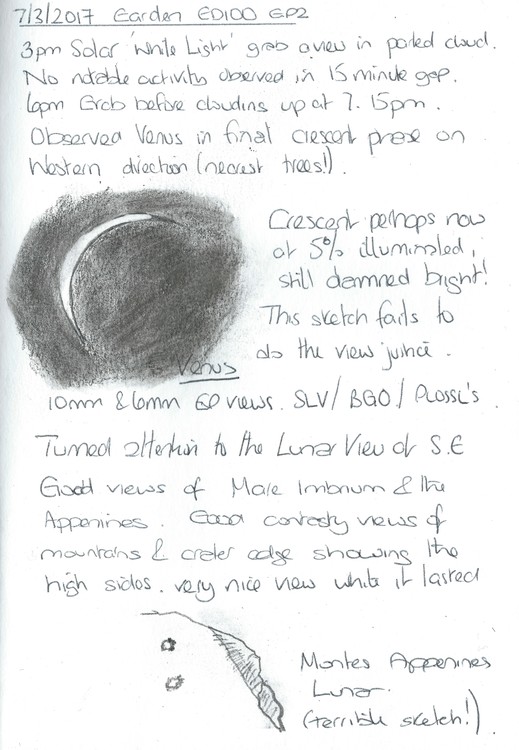 7/3/2017 Garden ED100 GP2
3pm Solar 'White Light' grab a view in parted cloud.
No notable activity observed in 15 minute gap.
6pm Grab before clouding up at 7.15pm.
Observed Venus in final crescent phase on
Western direction (nearest trees!).
Crescent perhaps now
at 5% illuminated,
still damned bright!
This sketch fails to
do the view justice.
Venus
10mm & 6mm EP views. SLV/ BGO/ Plossl's
Turned attention to the Lunar View at S.E
Good views of Mare Imbrium & the
Appenines. Good views of
mountains & crater edge showing the
high sides. very nice view while it lasted
Montes Appenines
Lunar.
(terrible sketch!)